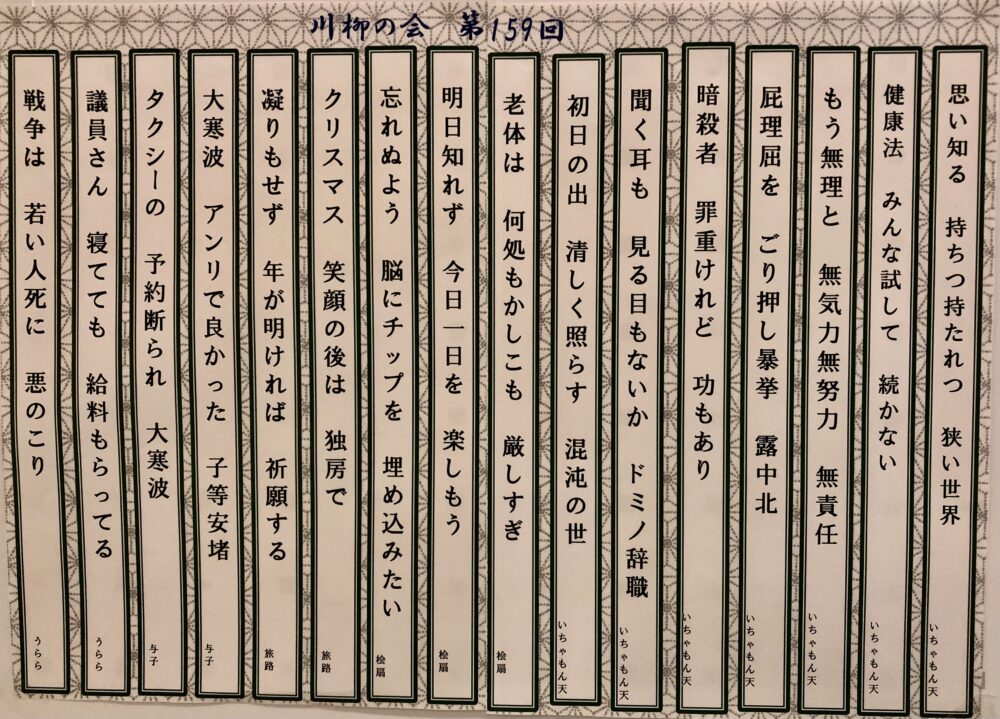 川柳の会　第159回
思い知る　持ちつ持たれつ　狭い世界
いちゃもん天
健康法　みんな試して　続かない
いちゃもん天
もう無理と　無気力無努力　無責任
いちゃもん天
屁理屈を　ごり押し暴挙　露中北
いちゃもん天
暗殺者　罪重けれど　功もあり
いちゃもん天
聞く耳も　見る目もないか　ドミノ辞職
いちゃもん天
初日の出　清しく照らす　混沌の世
いちゃもん天
老体は　何処もかしこも　厳しすぎ
桧扇
明日知れず　今日一日を　楽しもう
桧扇
忘れぬよう　脳にチップを　埋め込みたい
桧扇
クリスマス　笑顔の後は　独房で
旅路
凝りもせず　年が明ければ　祈願する
旅路
大寒波　アンリで良かった　子等安堵
与子
タクシーの　予約断られ　大寒波
与子
議員さん　寝てても　給料もらってる
うらら
戦争は　若い人死に　悪のこり
うらら